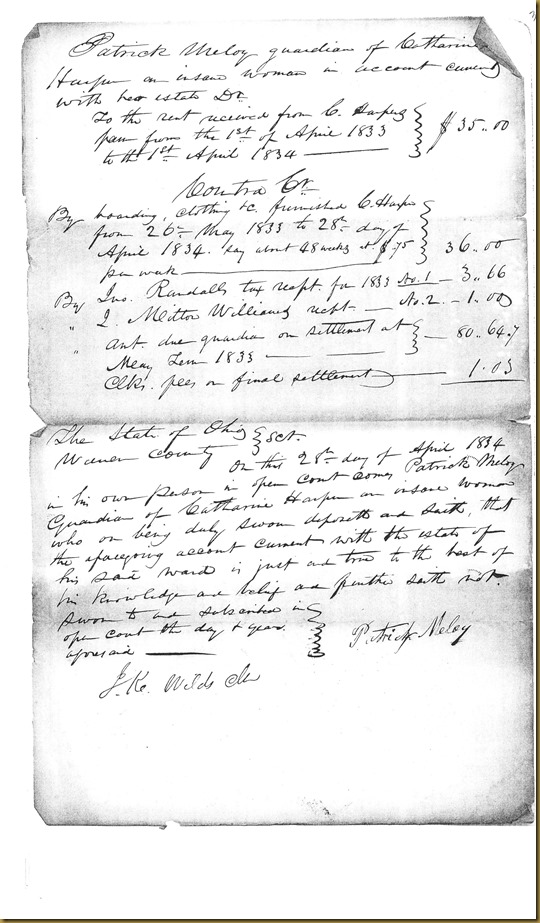 Patrick Meloy guardian of Catharine
Harper an insane woman in account current
with her estate Dr
To the rent received from C. Harpers
farm from the 1st of April 1833
to the 1st April 1834 — $35..00
Contra Cr
By boarding, clothing &c. furnished C. Harper
from 26th May 1833 to 28th day of
April 1834. say about 48 weeks at $.75
per week — 36..00
By Jno. Randalls tax recpt. for 1833 No. 1 — 3..66
" J. Milton Williams recpt. — No. 2. — 1..00
" Amt. due guardian on settlement at — 80..64.7
May Term 1833 —
Clks. fees on final settlement — 1.03
The State of Ohio
Warren County Sct.
On this 28th day of April 1834
in his own person in open court comes Patrick Meloy
Guardian of Catharine Harper an insane woman
who on being duly sworn deposeth and saith, that
the aforegoing account current with the estate of
his said ward is just and true to the best of
his knowledge and belief and further saith not.
Sworn to and subscribed in
open court the day & year
aforesaid —
Patrick Meloy
J. K. Wilds Clk